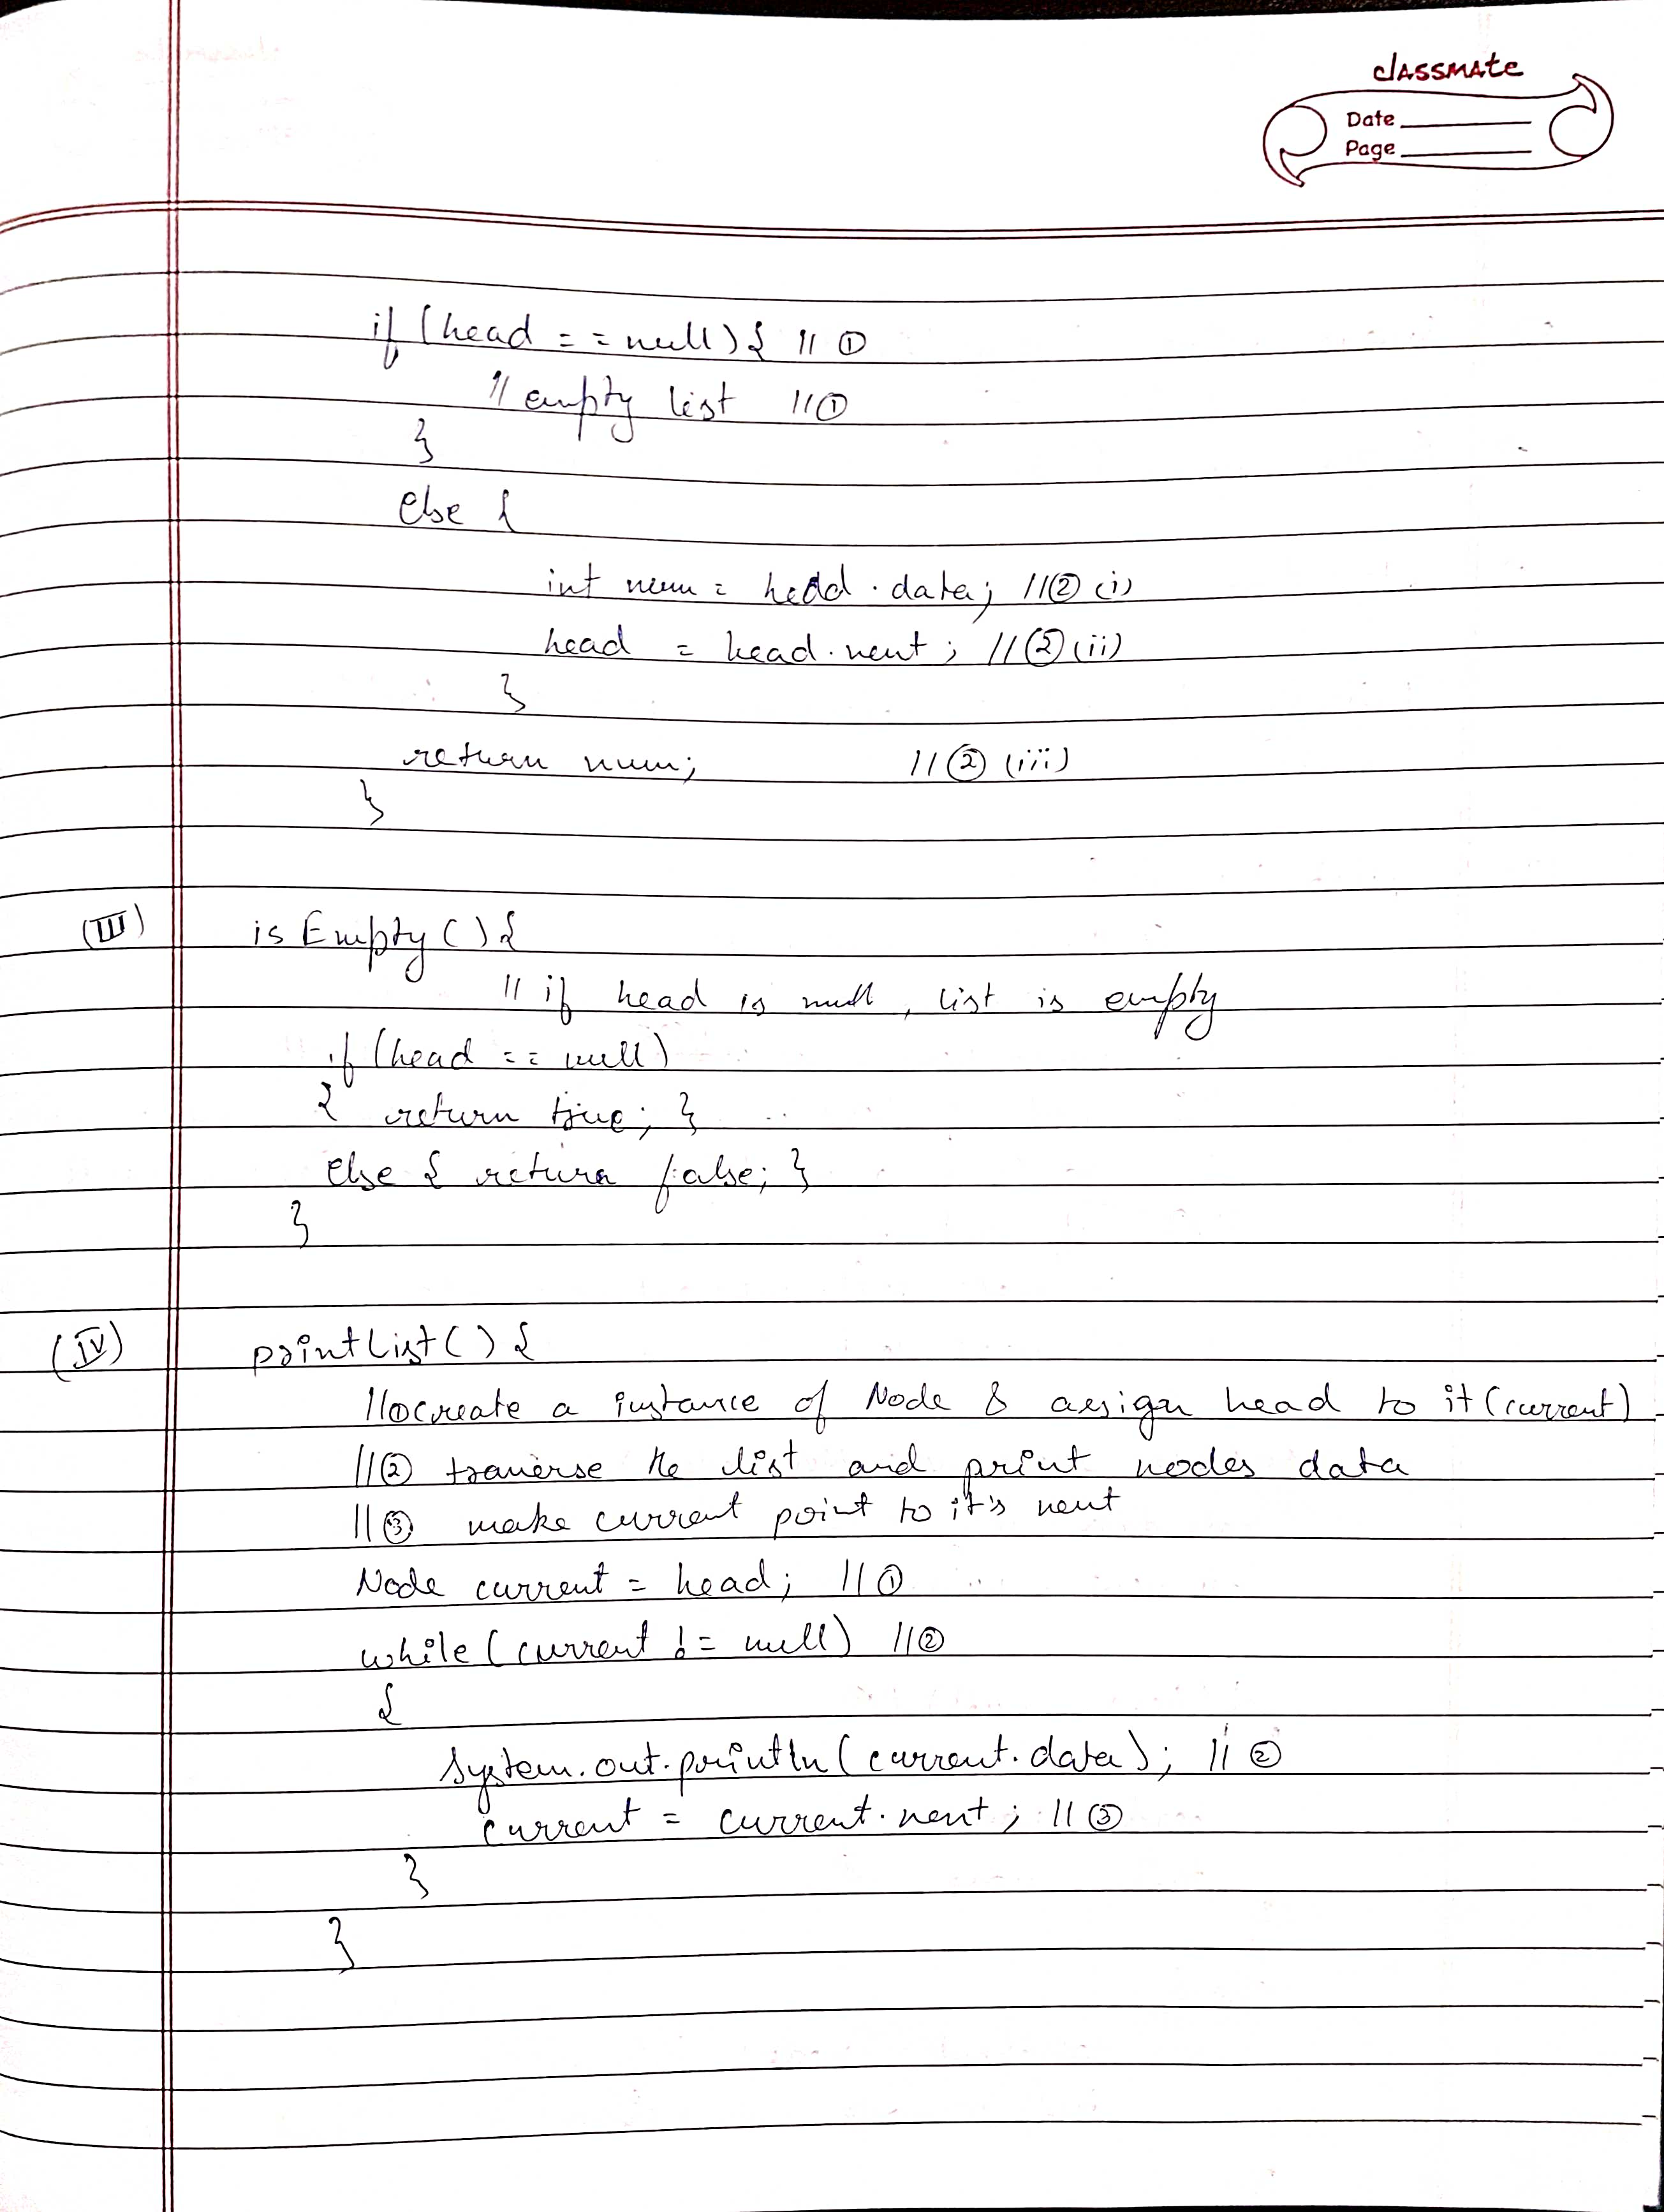 classmate
Date
Page
if (head == null) { // ①
// empty list // ①
}
else {
int num = head.data; // ② (i)
head = head.next; // ② (ii)
}
return num; // ② (iii)
}
(III) isEmpty() {
// if head is null, list is empty
if (head == null)
{ return true; }
else { return false; }
}
(IV) printList() {
// ① create a instance of Node & assign head to it (current)
// ② traverse the list and print nodes data
// ③ make current point to it's next
Node current = head; // ①
while (current != null) // ②
{
System.out.println(current.data); // ②
current = current.next; // ③
}
}